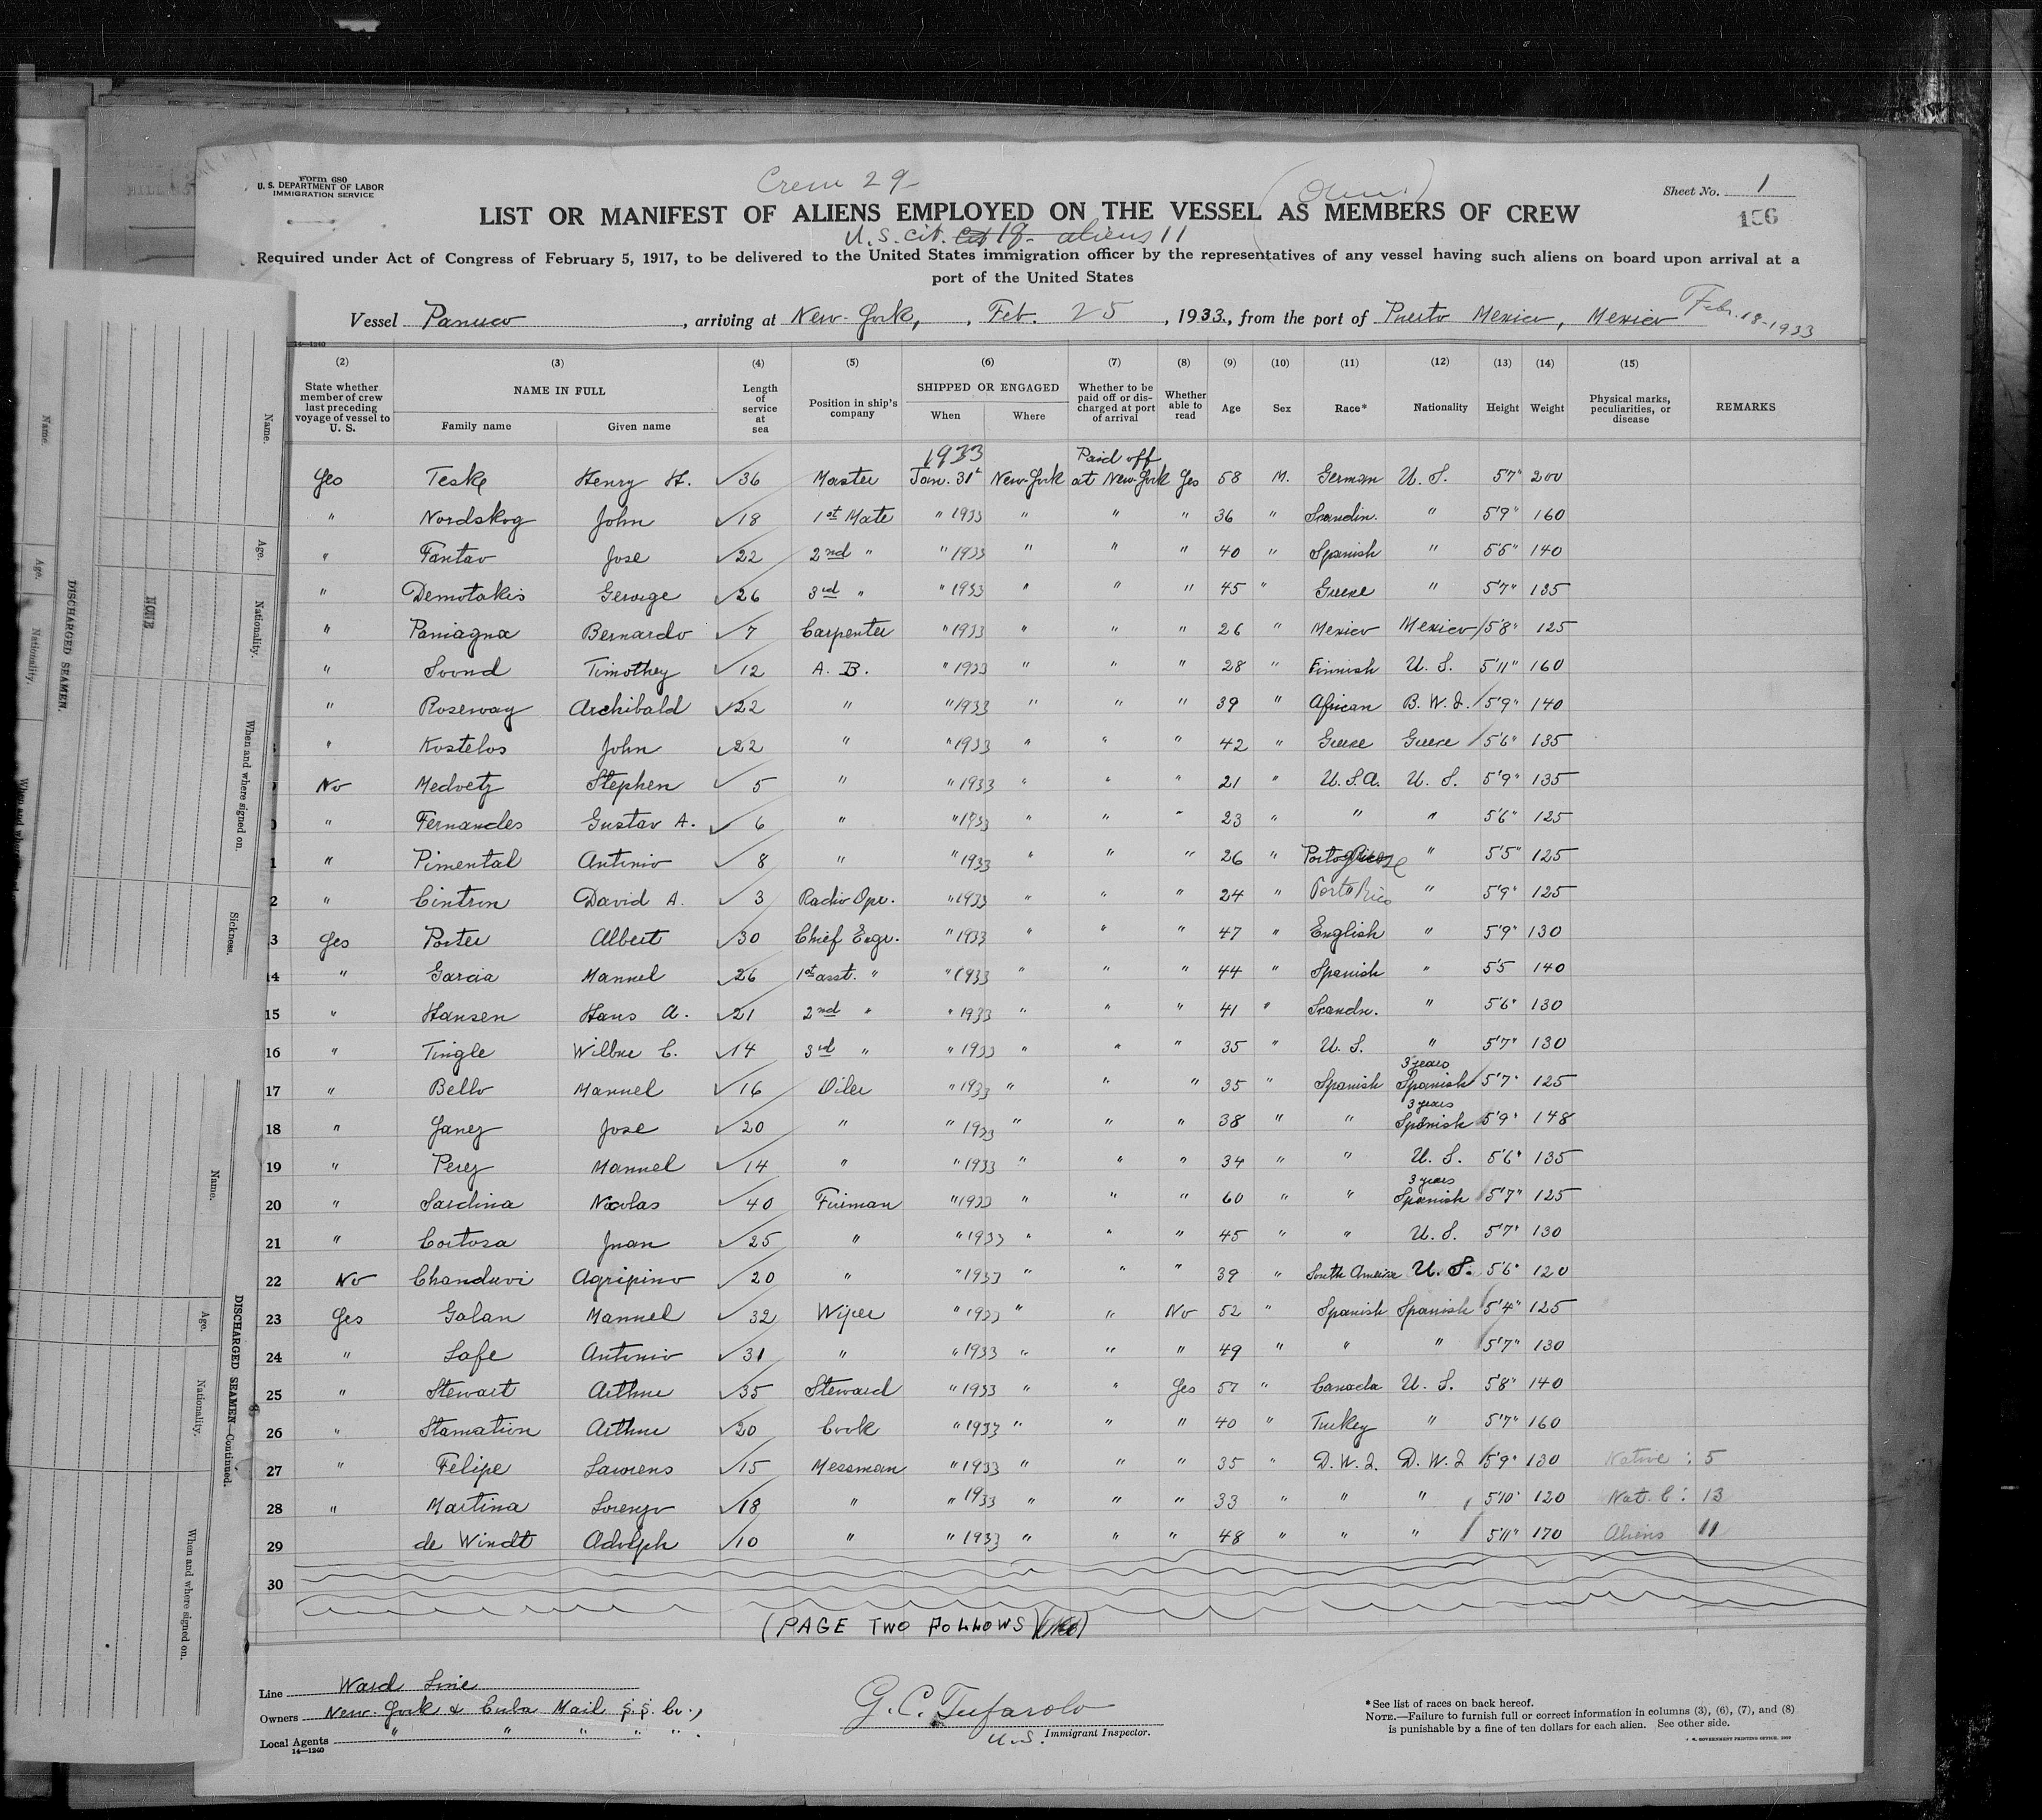 Form 680
U. S. DEPARTMENT OF LABOR
IMMIGRATION SERVICE
Crew 29
Sheet No. 1
LIST OR MANIFEST OF ALIENS EMPLOYED ON THE VESSEL AS MEMBERS OF CREW
156
U.S. cit. 18 - aliens 11
Required under Act of Congress of February 5, 1917, to be delivered to the United States immigration officer by the representatives of any vessel having such aliens on board upon arrival at a
port of the United States
Vessel Panuco, arriving at New York, Feb. 25, 1933, from the port of Puerto Mexico, Mexico Febr. 18-1933
14—1240
(2) (3) (4) (5) (6) (7) (8) (9) (10) (11) (12) (13) (14) (15)
State whether member of crew last preceding voyage of vessel to U. S. NAME IN FULL Family name Given name Length of service at sea Position in ship's company SHIPPED OR ENGAGED When Where Whether to be paid off or discharged at port of arrival Whether able to read Age Sex Race* Nationality Height Weight Physical marks, peculiarities, or disease REMARKS
1933 Paid off
Yes Teske Henry H. ✓ 36 Master Jan. 31 New York at New York Yes 58 M. German U. S. 5'7" 200
" Nordskog John ✓ 18 1st Mate " 1933 " " " 36 " Scandin. " 5'9" 160
" Fantao Jose ✓ 22 2nd " " 1933 " " " 40 " Spanish " 5'5" 140
" Demotakis George ✓ 26 3rd " " 1933 " " " 45 " Greece " 5'7" 135
" Paniagna Bernardo ✓ 7 Carpenter " 1933 " " " 26 " Mexico Mexico 5'8" 125
" Soond Timothey ✓ 12 A. B. " 1933 " " " 28 " Finnish U. S. 5'11" 160
" Roseway Archibald ✓ 22 " " 1933 " " " 39 " African B. W. I. 5'9" 140
" Kostelos John ✓ 22 " " 1933 " " " 42 " Greece Greece 5'6" 135
No Medvetz Stephen ✓ 5 " " 1933 " " " 21 " U.S.A. U. S. 5'9" 135
" Fernandes Gustav A. ✓ 6 " " 1933 " " " 23 " " " 5'6" 125
" Pimental Antinio ✓ 8 " " 1933 " " " 26 " " 5'5" 125
" Cintron David A. ✓ 3 Radio Opr. " 1933 " " " 24 " Porto Rico " 5'9" 125
13 Yes Porter Albert ✓ 30 Chief Engr. " 1933 " " " 47 " English " 5'9" 130
14 " Garcia Manuel ✓ 26 1st asst. " " 1933 " " " 44 " Spanish " 5'5 140
15 " Hansen Hans A. ✓ 21 2nd " " 1933 " " " 41 " Scandn. " 5'6" 130
16 " Tingle Wilbur C. ✓ 14 3rd " " 1933 " " " 35 " U. S. " 5'7" 130
17 " Bello Manuel ✓ 16 Oiler " 1933 " " " 35 " Spanish 3 years Spanish 5'7" 125
18 " Yanez Jose ✓ 20 " " 1933 " " " 38 " " 3 years Spanish 5'9" 148
19 " Perez Manuel ✓ 14 " " 1933 " " " 34 " " U. S. 5'6" 135
20 " Sardina Nicolas ✓ 40 Fireman " 1933 " " " 60 " " 3 years Spanish 5'7" 125
21 " Cortosa Juan ✓ 25 " " 1933 " " " 45 " " U. S. 5'7" 130
22 No Chanduvi Agripino ✓ 20 " " 1933 " " " 39 " South America U. S. 5'6" 120
23 Yes Galan Manuel ✓ 32 Wiper " 1933 " " No 52 " Spanish Spanish 5'4" 125
24 " Lafe Antonio ✓ 31 " " 1933 " " " 49 " " " 5'7" 130
25 " Stewart Arthur ✓ 35 Steward " 1933 " " Yes 57 " Canada U. S. 5'8" 140
26 " Stamation Arthur ✓ 20 Cook " 1933 " " " 40 " Turkey " 5'7" 160
27 " Felipe Lawrens ✓ 15 Messman " 1933 " " " 35 " D. W. I. D. W. I 5'9" 130 Native : 5
28 " Martina Lorenzo ✓ 18 " " 1933 " " " 33 " " " 5'10" 120 Nat. C : 13
29 de Windt Adolph ✓ 10 " " 1933 " " " 48 " " " 5'11" 170 Aliens 11
30
(PAGE TWO FOLLOWS)
Line Ward Line
Owners New York & Cuba Mail S.S. Co.,
Local Agents " " " " "
14—1240
G. C. Tufarolo
U.S. Immigrant Inspector.
*See list of races on back hereof.
NOTE.—Failure to furnish full or correct information in columns (3), (6), (7), and (8)
is punishable by a fine of ten dollars for each alien. See other side.
U. S. GOVERNMENT PRINTING OFFICE
Name. Age. Nationality. When and where signed on. Sickness.
DISCHARGED SEAMEN.
NONE
Name. Age. Nationality. When and where signed on.
DISCHARGED SEAMEN—Continued.